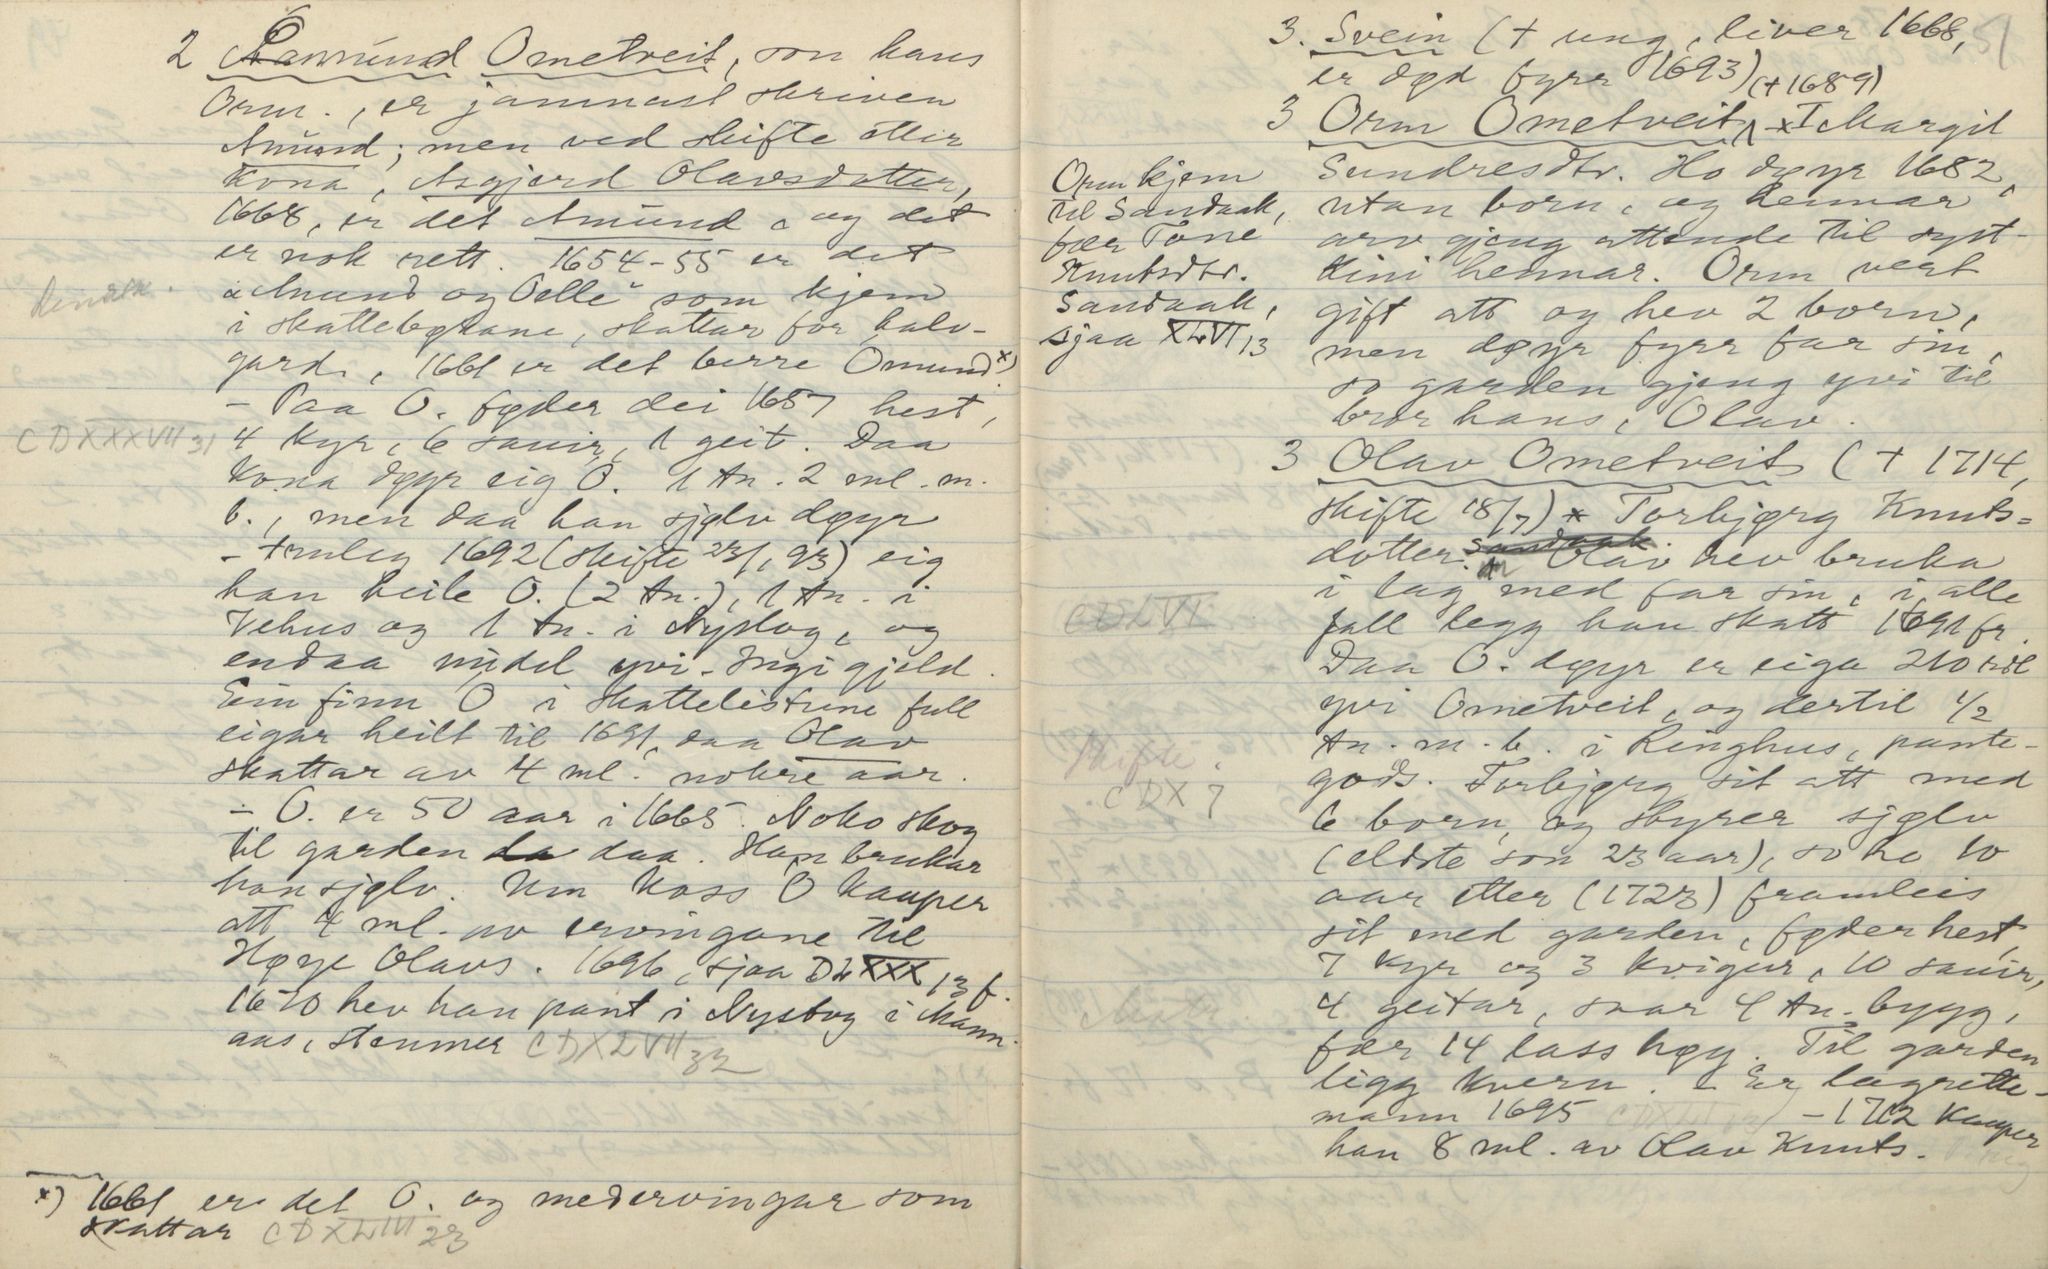 2 Aamund Ometveit, son hans
Orm., er jamnast skriven
Amund; men ved skifte etter
kona, Asgjerd Olavsdotter,
1668, er det Amund, og det
er nok rett. 1654-55 er det
"Amund og Pelle" som kjem
i skattebøkane, skattar for halv-
gard, 1661 er det berre Omund x)
- Paa O. føder dei 1657 hest,
CDXXXVII 31
4 kyr, 6 sauir, 1 geit. Daa
kona døyr eig O. 1 tn. 2 ml. m.
b., men daa han sjølv døyr
- truleg 1692 (skifte 23/1 93) eig
han heile O. (2 tn.), 1 tn. i
Vehus og 1 tn. i Nystog, og
endaa midel yvi. Ingi gjeld.
Ein finn O i skattelistune full
eigar heilt til 1691, daa Olav
skattar av 4 ml. nokre aar.
- O. er 50 aar i 1665. Noko skog
til garden daa. Han brukar
han sjølv. Um Koss O kauper
att 4 ml. av ervingane til
Høye Olavs. 1696, sjaa DLXXX 13 f.
1670 hev han pant i Nystog i Mann-
aas, stemner CDXLVII 32
x) 1661 er det O. og medervingar som
skattar CDXLIII 23
3. Svein (+ ung, liver 1668,
er død fyrr 1693) (+1689)
3 Orm Ometveit, x I Margit
Sundresdtr. Ho døyr 1682,
utan born, og hennar
arv gjeng attende til syst-
kini hennar. Orm vert
gift att og hev 2 born,
men døyr fyrr far sin,
so garden gjeng yvi til
bror hans, Olav.
Orm kjem
til Sandaak,
fær Tone
Knutsdtr.
Sandaak,
sjaa XLVI 13
3 Olav Ometveit (+ 1714,
skifte 18/7) x Torbjørg Knuts-
dotter Sandaak. Olav hev bruka
i lag med far sin, i alle
fall legg han skatt 1691 fr.
CDLVI
Daa O. døyr er eiga 210 rdl
yvi Ometveit, og dertil 1/2
tn. m. b. i Ringhus, pante-
gods. Torbjørg sit att med
Skifte:
CDX 7
6 born, og styrer sjølv
(eldste son 23 aar), so ho 10
aar etter (1723) framleis
sit med garden, føder hest,
7 kyr og 3 kvigur, 10 sauir,
4 geitar, saar 4 tn. bygg,
fær 14 lass høy. Til garden
ligg kvern. - Er lagrette-
mann 1695 - 1702 kauper
han 8 ml. av Olav Knuts.